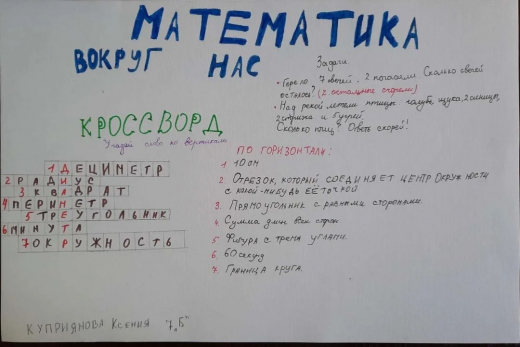 МАТЕМАТИКА
ВОКРУГ НАС
Задачи
• Горело 7 свечей. 2 погасли Сколько свечей
осталось? (2 остальные сгорели)
• Над рекой летели птицы: голубь, щука, 2 синицы,
2 стрижа и 5 угрей.
Сколько птиц? Ответь скорей!
КРОССВОРД
Угадай слово по вертикали
1 ДЕЦИМЕТР
2 РАДИУС
3 КВАДРАТ
4 ПЕРИМЕТР
5 ТРЕУГОЛЬНИК
6 МИНУТА
7 ОКРУЖНОСТЬ
ПО ГОРИЗОНТАЛИ:
1 10 см
2. ОТРЕЗОК, КОТОРЫЙ СОЕДИНЯЕТ ЦЕНТР ОКРУЖНОСТИ
С КАКОЙ-НИБУДЬ ЕЁ ТОЧКОЙ
3. ПРЯМОУГОЛЬНИК С РАВНЫМИ СТОРОНАМИ.
4. Сумма длин всех сторон
5 Фигура с тремя углами.
6. 60 секунд
7. Граница круга.
КУПРИЯНОВА Ксения "7 Б"